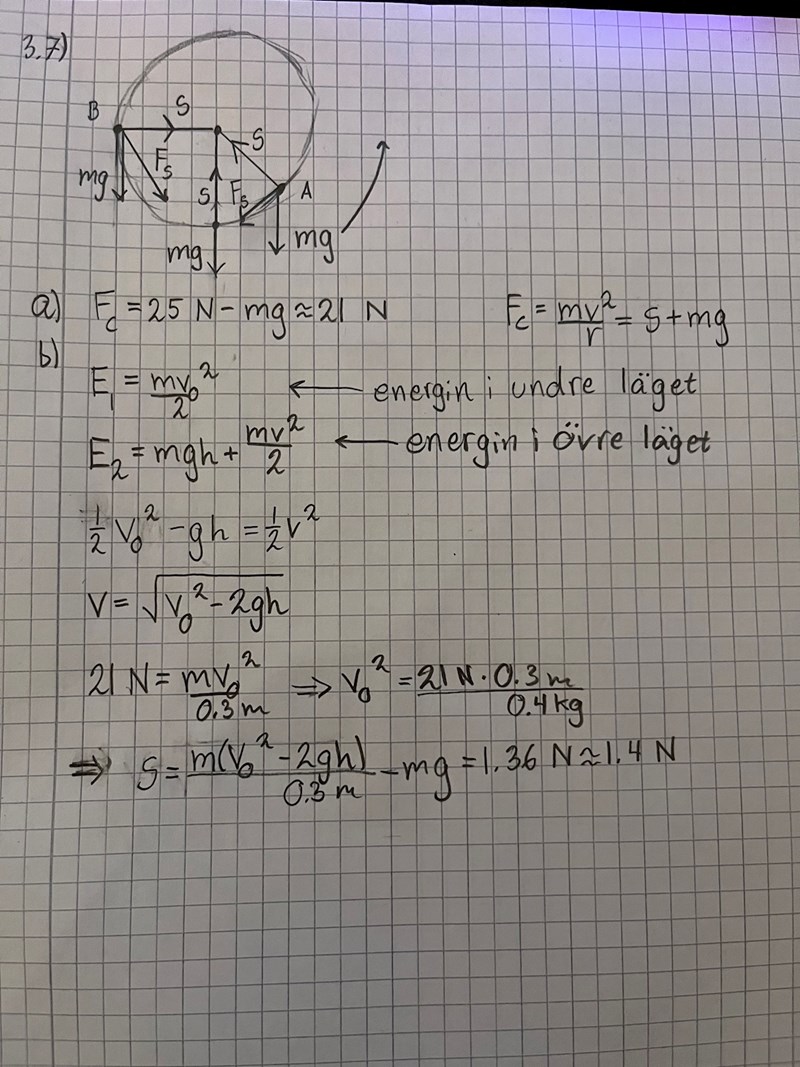 3.7)
B S S
mg F_s S F_s A
mg mg
a) F_c = 25 N - mg ≈ 21 N F_c = mv²/r = S + mg
b)
E₁ = mv₀²/2 ← energin i undre läget
E₂ = mgh + mv²/2 ← energin i övre läget
1/2 v₀² - gh = 1/2 v²
v = √(v₀² - 2gh)
21 N = mv₀²/0.3 m ⇒ v₀² = 21 N · 0.3 m/0.4 kg
⇒ S = m(v₀² - 2gh)/0.3 m - mg = 1.36 N ≈ 1.4 N